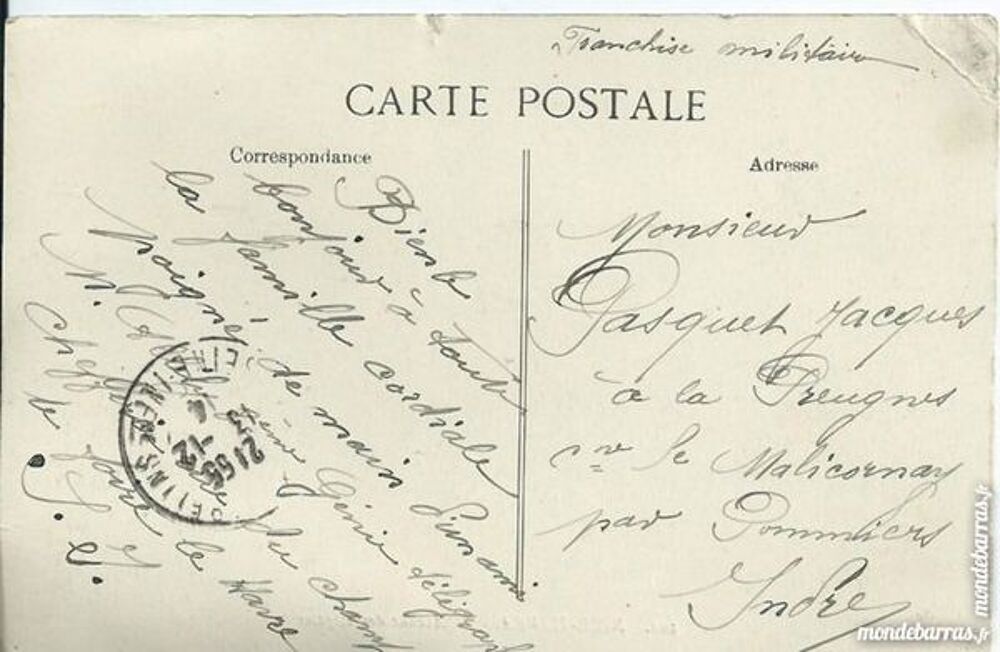 Franchise militaire
CARTE POSTALE
Correspondance
Adresse
Bien le
bonjour à toute
la famille cordiale
poignée de main d'un ami
Génie
télégraph
Chef
du champ
de foire le Havre
S. I.
Monsieur
Pasquet Jacques
à la Preugnes
cne de Malicornay
par Pommiers
Indre
21
12
mondebarras.fr
mondebarras.fr